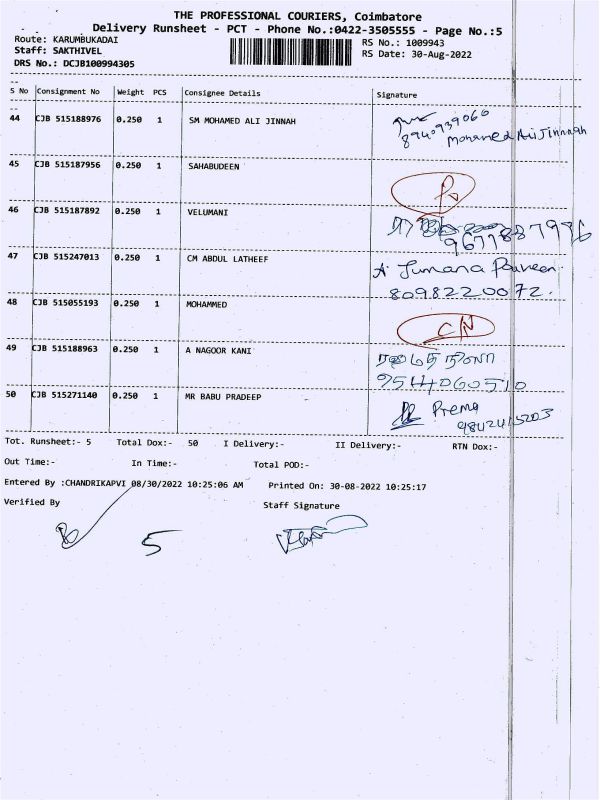 THE PROFESSIONAL COURIERS, Coimbatore
Delivery Runsheet - PCT - Phone No.:0422-3505555 - Page No.:5
Route: KARUMBUKADAI RS No.: 1009943
Staff: SAKTHIVEL RS Date: 30-Aug-2022
DRS No.: DCJB100994305
S No Consignment No Weight PCS Consignee Details Signature
44 CJB 515188976 0.250 1 SM MOHAMED ALI JINNAH 8940939060
Mohamed Ali Jinnah
45 CJB 515187956 0.250 1 SAHABUDEEN
46 CJB 515187892 0.250 1 VELUMANI
9671887976
47 CJB 515247013 0.250 1 CM ABDUL LATHEEF A Jumana Parveen.
8098220072.
48 CJB 515055193 0.250 1 MOHAMMED CN
49 CJB 515188963 0.250 1 A NAGOOR KANI
9514060510
50 CJB 515271140 0.250 1 MR BABU PRADEEP Prema
9842415203
Tot. Runsheet:- 5 Total Dox:- 50 I Delivery:- II Delivery:- RTN Dox:-
Out Time:- In Time:- Total POD:-
Entered By :CHANDRIKAPVI 08/30/2022 10:25:06 AM Printed On: 30-08-2022 10:25:17
Verified By Staff Signature
5